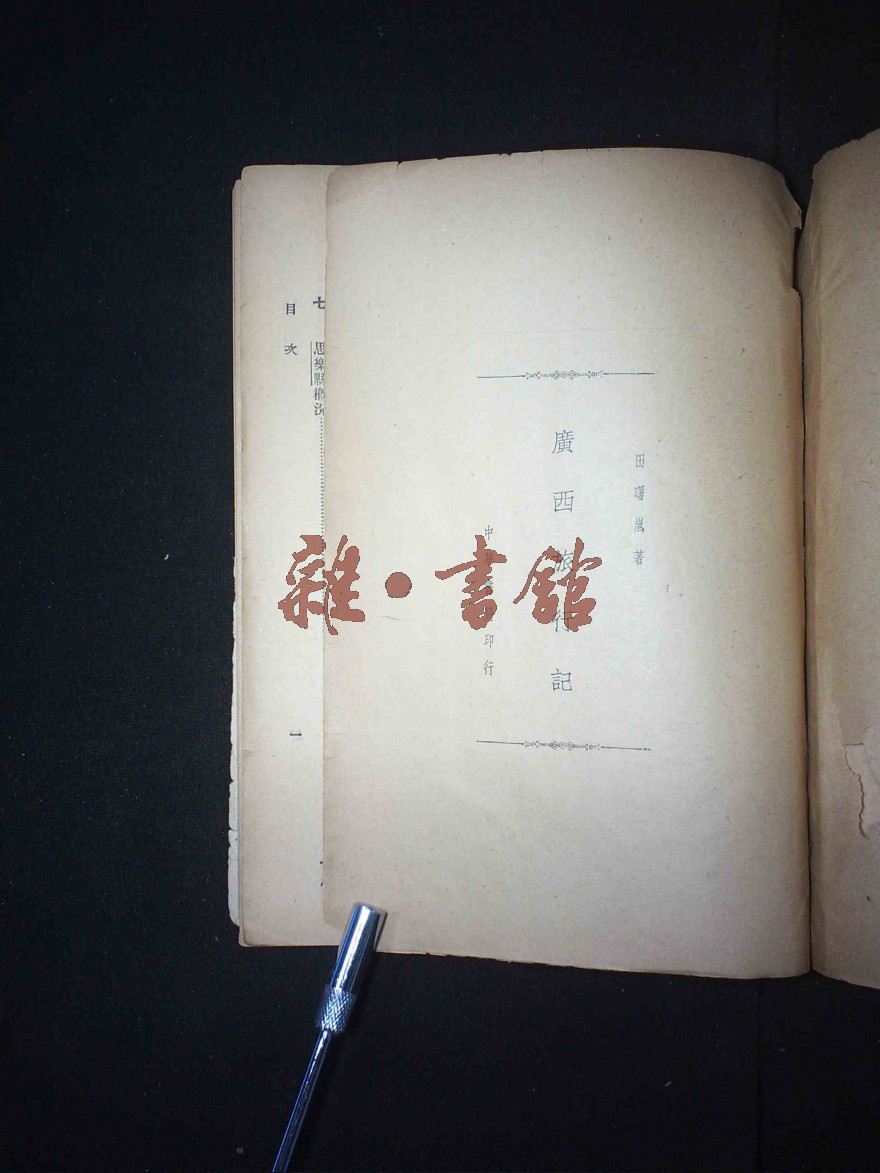 田曙嵐著
廣西旅行記
中華書局印行
七 思樂縣概況
目次
一
雜·書館